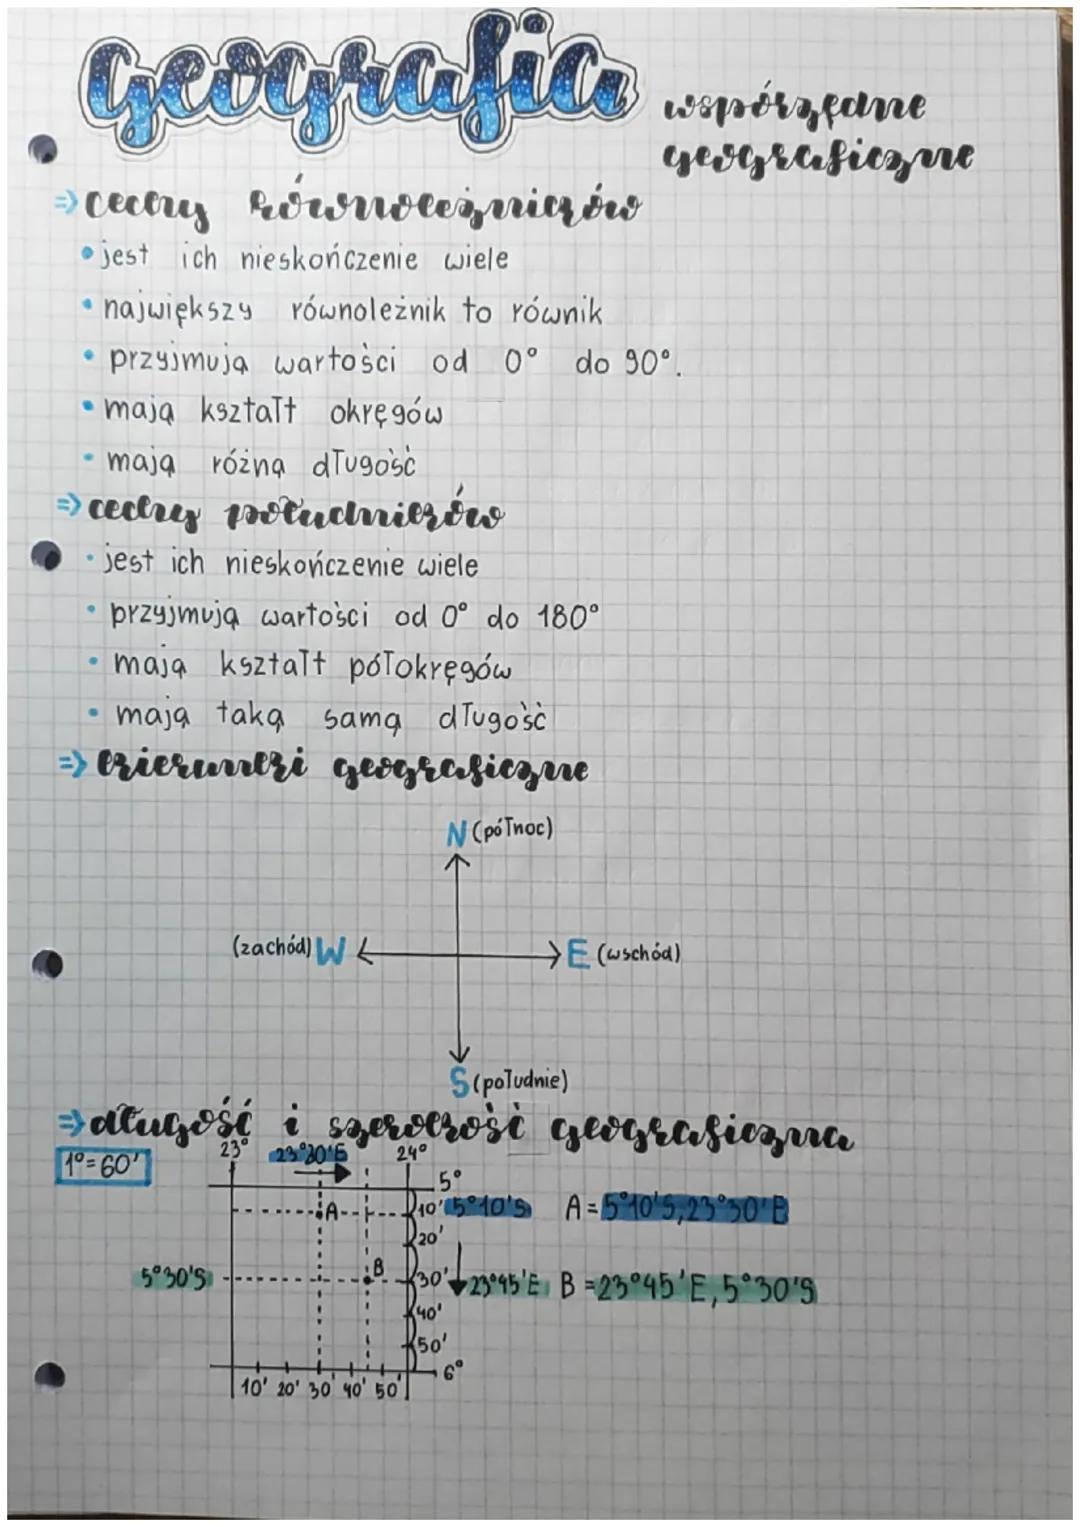 Geografia
współrzędne
geograficzne
⇒ cechy równoleżników
• jest ich nieskończenie wiele
• największy równoleżnik to równik
• przyjmują wartości od 0° do 90°.
• mają kształt okręgów
• mają różną długość
⇒ cechy południków
• jest ich nieskończenie wiele
• przyjmują wartości od 0° do 180°
• mają kształt półokręgów
• mają taką samą długość
⇒ kierunki geograficzne
N (północ)
(zachód) W E (wschód)
S (południe)
⇒ długość i szerokość geograficzna
1°=60'
23° 23°30'E 24°
5°
A 10' 5°10'S A=5°10'S, 23°30'E
20'
5°30'S B 30' 23°45'E B=23°45'E, 5°30'S
40'
50'
6°
10' 20' 30' 40' 50'